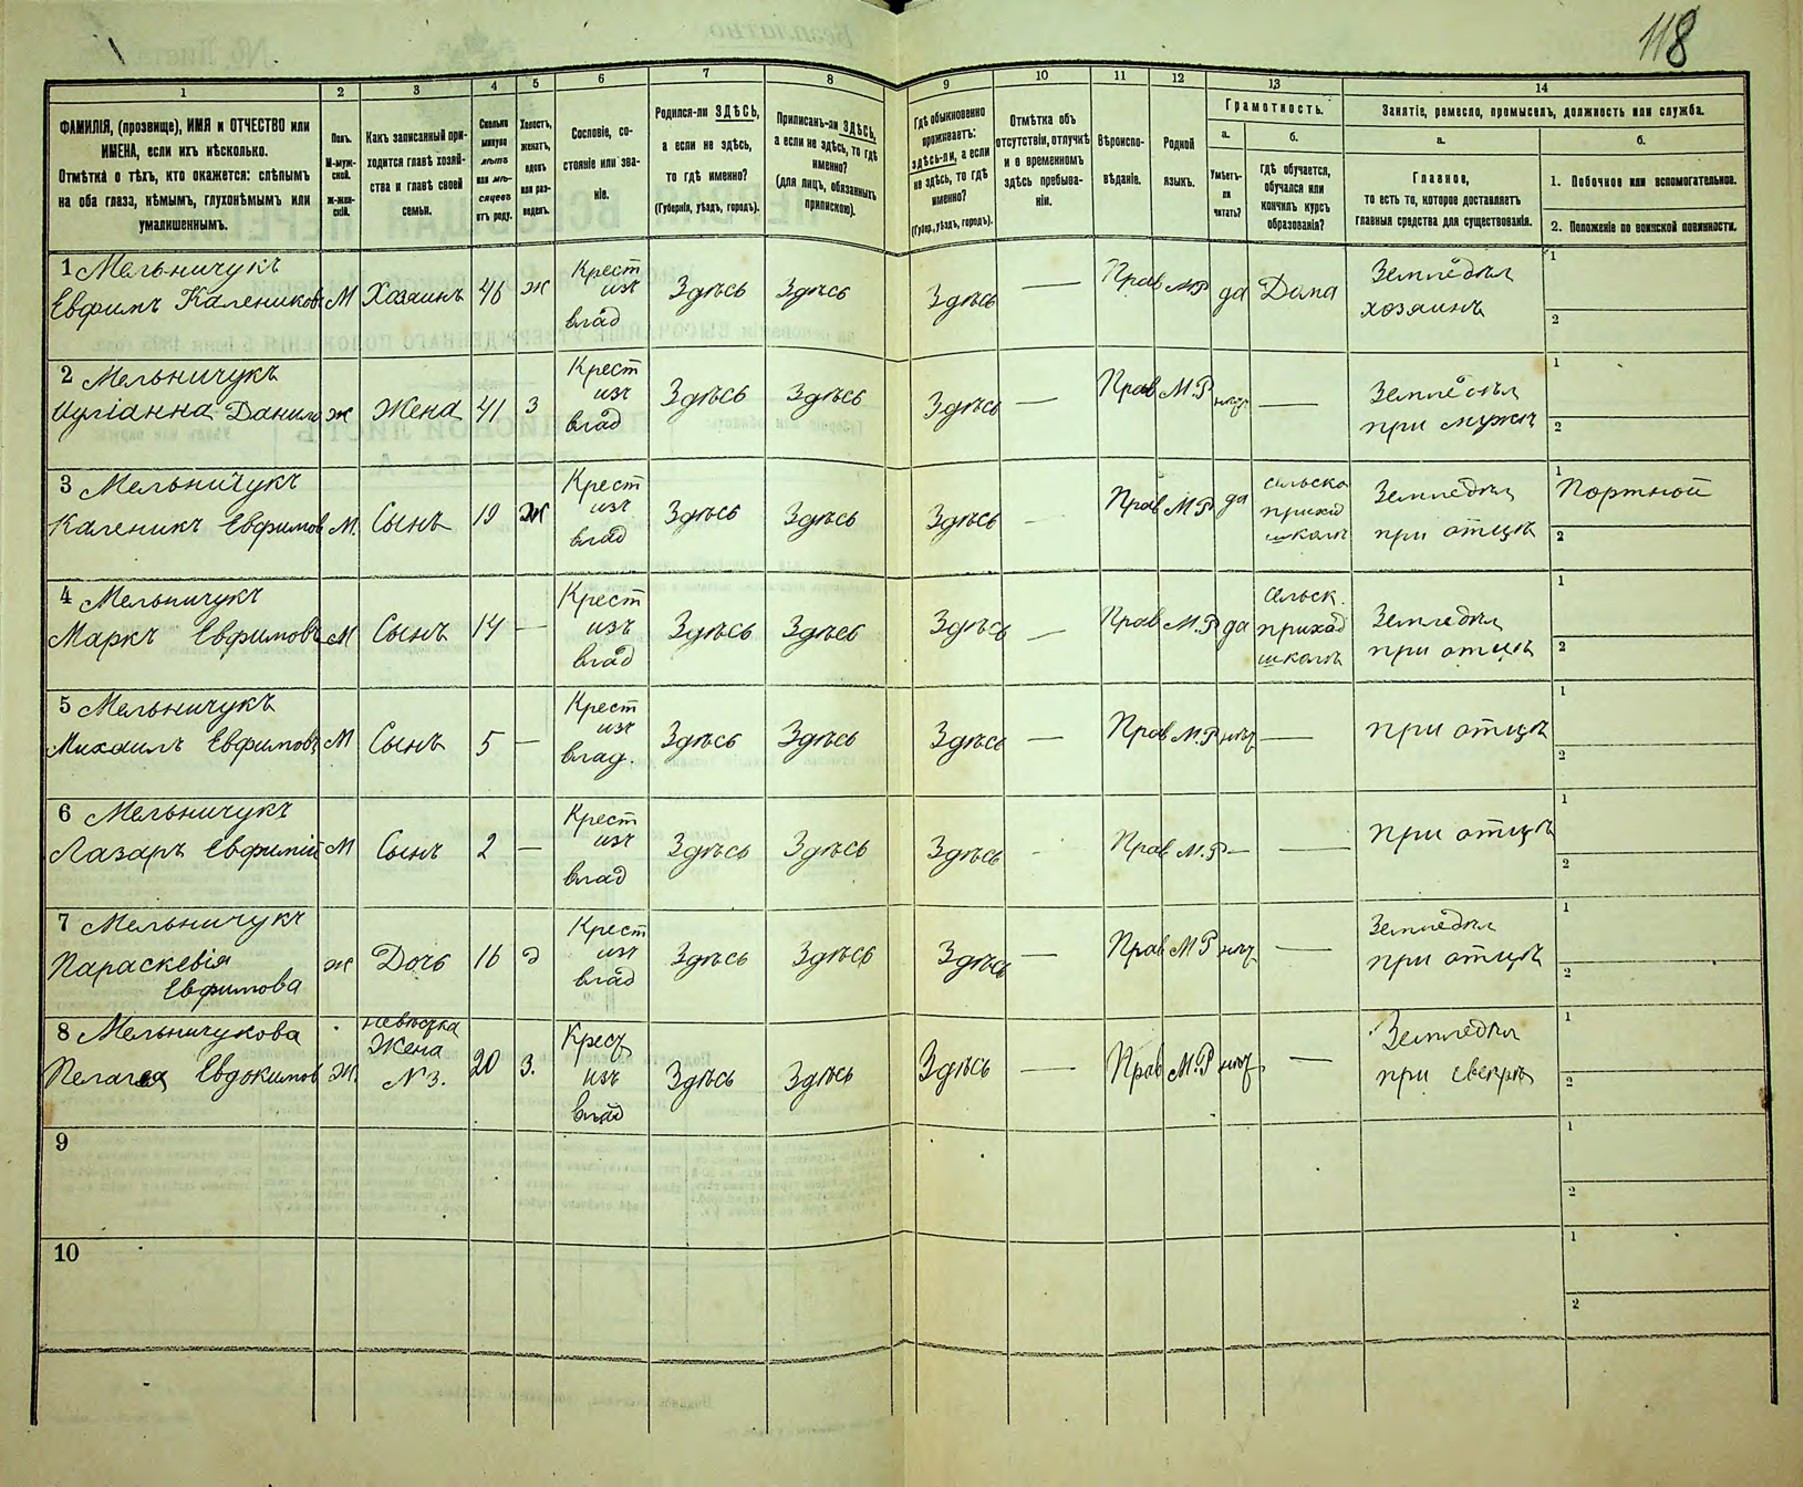 118
1
2
3
4
5
6
7
8
9
10
11
12
13
14
ФАМИЛІЯ, (прозвище), ИМЯ и ОТЧЕСТВО или
ИМЕНА, если ихъ нѣсколько.
Отмѣтка о тѣхъ, кто окажется: слѣпымъ
на оба глаза, нѣмымъ, глухонѣмымъ или
умалишеннымъ.
Полъ.
М-муж-
ской.
ж-жен-
скій.
Какъ записанный при-
ходится главѣ хозяй-
ства и главѣ своей
семьи.
Сколько
минуло
лѣтъ
или мѣ-
сяцевъ
отъ роду.
Холостъ,
женатъ,
вдовъ
или раз-
веденъ.
Сословіе, со-
стояніе или зва-
ніе.
Родился-ли ЗДѢСЬ,
а если не здѣсь,
то гдѣ именно?
(Губернія, уѣздъ, городъ).
Приписанъ-ли ЗДѢСЬ,
а если не здѣсь, то гдѣ
именно?
(для лицъ, обязанныхъ
припискою).
Гдѣ обыкновенно
проживаетъ:
здѣсь-ли, а если
не здѣсь, то гдѣ
именно?
(Губер., уѣздъ, городъ).
Отмѣтка объ
отсутствіи, отлучкѣ
и о временномъ
здѣсь пребыва-
ніи.
Вѣроиспо-
вѣданіе.
Родной
языкъ.
Грамотность.
а.
б.
Умѣетъ-
ли
читать?
гдѣ обучается,
обучался или
кончилъ курсъ
образованія?
Занятіе, ремесло, промыселъ, должность или служба.
а.
б.
Главное,
то есть то, которое доставляетъ
главныя средства для существованія.
1. Побочное или вспомогательное.
2. Положеніе по воинской повинности.
1 Мельничукъ
Евфимъ Калениковъ М Хозяинъ 46 ж Крест изъ влад Здѣсь Здѣсь Здѣсь — Прав М.Р да Дома Земледѣл хозяинъ 1 2
2 Мельничукъ
Іуліанна Данило ж Жена 41 З Крест изъ влад Здѣсь Здѣсь Здѣсь — Прав М.Р нѣт — Земледѣл при мужѣ 1 2
3 Мельничукъ
Каленикъ Евфимов М. Сынъ 19 Ж Крест изъ влад Здѣсь Здѣсь Здѣсь — Прав М.Р да сельско приход школѣ Земледѣл при отцѣ 1 Портной 2
4 Мельничукъ
Маркъ Евфимовъ М Сынъ 14 — Крест изъ влад Здѣсь Здѣсь Здѣсь — Прав М.Р да сельск. приход школѣ Земледѣл при отцѣ 1 2
5 Мельничукъ
Михаилъ Евфимовъ М Сынъ 5 — Крест изъ влад. Здѣсь Здѣсь Здѣсь — Прав М.Р нѣт — при отцѣ 1 2
6 Мельничукъ
Лазаръ Евфимій М Сынъ 2 — Крест изъ влад Здѣсь Здѣсь Здѣсь - Прав М.Р — — при отцѣ 1 2
7 Мельничукъ
Параскевія
Евфимова ж Дочь 16 д Крест изъ влад Здѣсь Здѣсь Здѣсь — Прав М Р нѣт — Земледѣл при отцѣ 1 2
8 Мельничукова
Пелагея Евдокимов Ж. невѣстка Жена №3. 20 З. Крест изъ влад Здѣсь Здѣсь Здѣсь — Прав М.Р нѣт — Земледѣл при свекрѣ 1 2
9 1 2
10 1 2